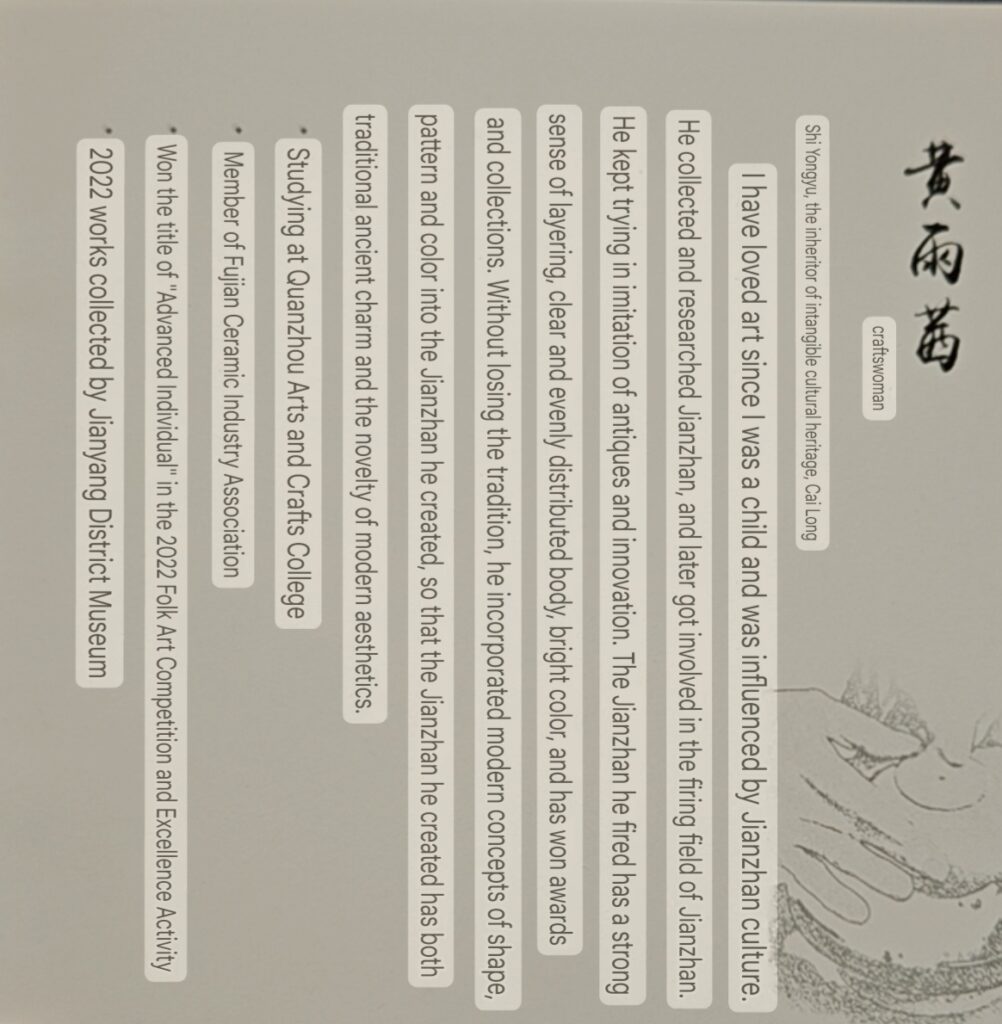 黄雨茜
craftswoman
Shi Yongyu, the inheritor of intangible cultural heritage, Cai Long
I have loved art since I was a child and was influenced by Jianzhan culture.
He collected and researched Jianzhan, and later got involved in the firing field of Jianzhan.
He kept trying in imitation of antiques and innovation. The Jianzhan he fired has a strong
sense of layering, clear and evenly distributed body, bright color, and has won awards
and collections. Without losing the tradition, he incorporated modern concepts of shape,
pattern and color into the Jianzhan he created, so that the Jianzhan he created has both
traditional ancient charm and the novelty of modern aesthetics.
• Studying at Quanzhou Arts and Crafts College
• Member of Fujian Ceramic Industry Association
• Won the title of "Advanced Individual" in the 2022 Folk Art Competition and Excellence Activity
• 2022 works collected by Jianyang District Museum